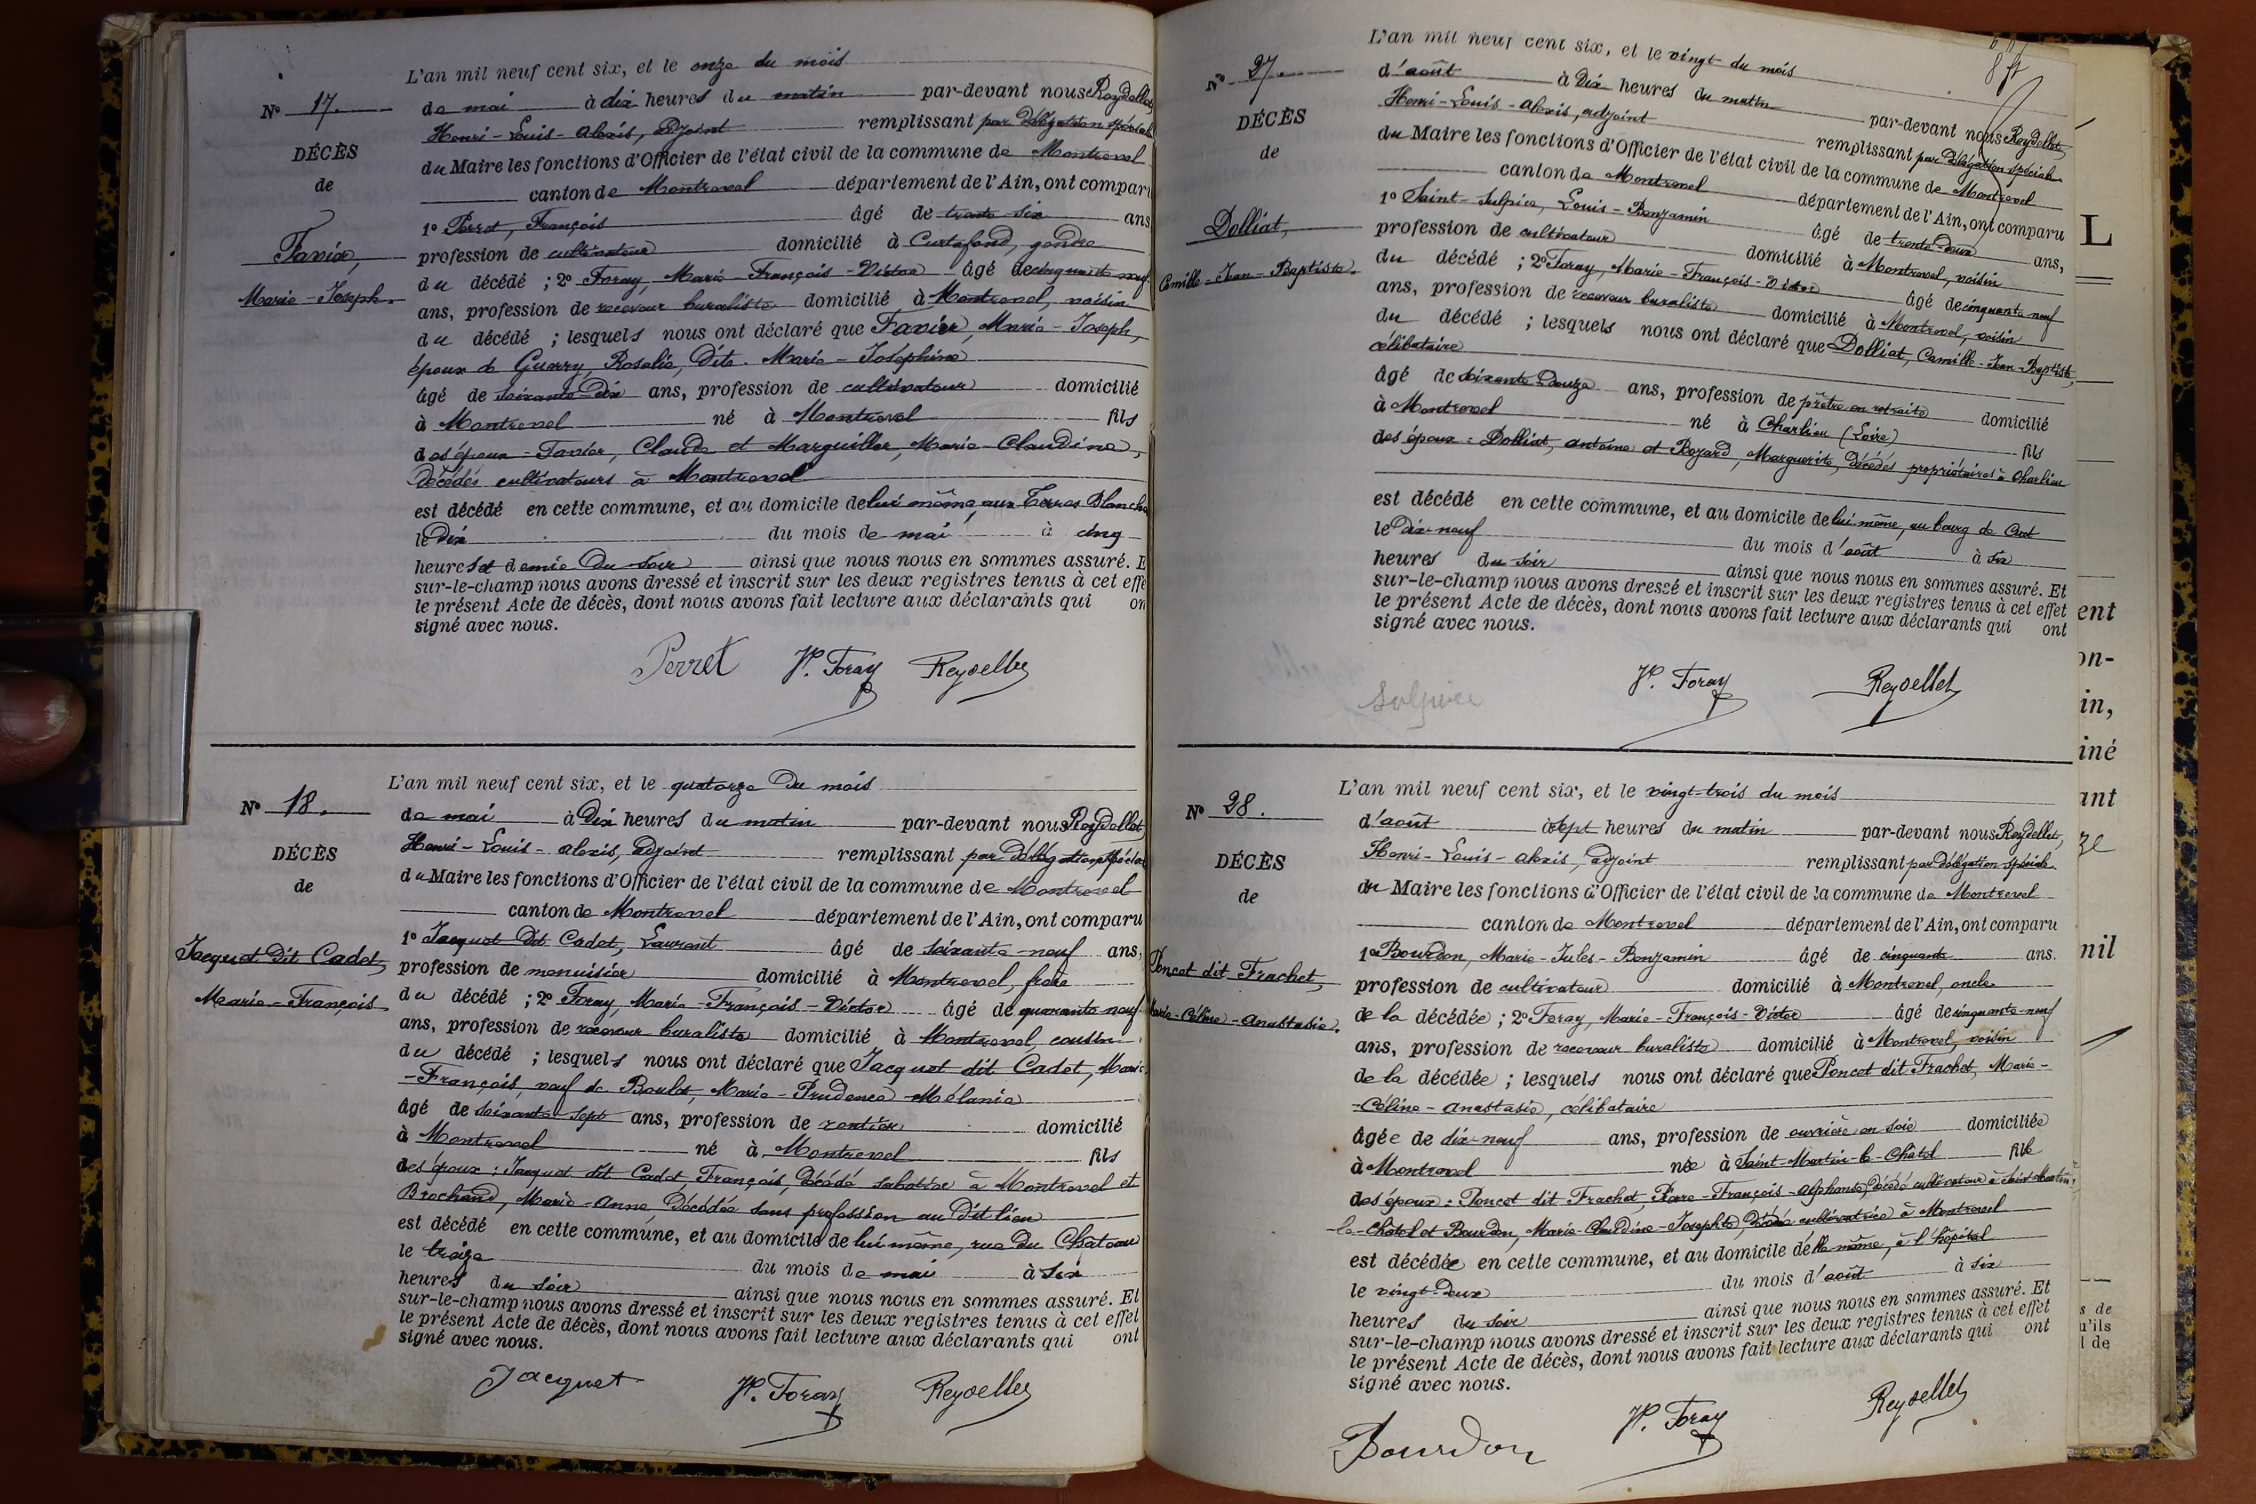 L'an mil neuf cent six, et le onze du mois
Nº 17.
de mai à dix heures du matin par-devant nous Reydellet,
Henri-Louis-Alexis, adjoint remplissant par délégation spéciale
DÉCÈS
du Maire les fonctions d'Officier de l'état civil de la commune de Montrevel
de
canton de Montrevel département de l'Ain, ont comparu
1º Perret, François âgé de trente six ans
Favier,
profession de cultivateur domicilié à Curtafond, gendre
Marie-Joseph.
du décédé ; 2º Foray, Marie-François-Victor âgé de cinquante neuf
ans, profession de receveur buraliste domicilié à Montrevel, voisin
du décédé ; lesquels nous ont déclaré que Favier, Marie-Joseph,
époux de Guerry, Rosalie, dite Marie-Joséphine
âgé de soixante-dix ans, profession de cultivateur domicilié
à Montrevel né à Montrevel fils
des époux = Favier, Claude et Marguiller, Marie-Claudine,
décédés cultivateurs à Montrevel
est décédé en cette commune, et au domicile de lui même, aux Terres Blanches
le dix du mois de mai à cinq
heures et demie du soir ainsi que nous nous en sommes assuré. E
sur-le-champ nous avons dressé et inscrit sur les deux registres tenus à cet effe
le présent Acte de décès, dont nous avons fait lecture aux déclarants qui on
signé avec nous.
Perret Vr. Foray Reydellet
L'an mil neuf cent six, et le quatorze du mois
Nº 18.
de mai à dix heures du matin par-devant nous Reydellet,
Henri-Louis-Alexis, adjoint remplissant par délégation spéciale
DÉCÈS
du Maire les fonctions d'Officier de l'état civil de la commune de Montrevel
de
canton de Montrevel département de l'Ain, ont comparu
1º Jacquet dit Cadet, Laurent âgé de soixante-neuf ans,
Jacquet dit Cadet,
profession de menuisier domicilié à Montrevel, frère
Marie-François
du décédé ; 2º Foray, Marie-François-Victor âgé de quarante neuf
ans, profession de receveur buraliste domicilié à Montrevel, cousin
du décédé ; lesquels nous ont déclaré que Jacquet dit Cadet, Marie
-François, veuf de Boulet, Marie-Prudence Mélanie
âgé de soixante-sept ans, profession de rentier domicilié
à Montrevel né à Montrevel fils
des époux : Jacquet dit Cadet, François, décédé sabotier à Montrevel et
Brochand, Marie-Anne, décédée sans profession au dit lieu
est décédé en cette commune, et au domicile de lui même, rue du Château
le treize du mois de mai à six
heures du soir ainsi que nous nous en sommes assuré. Et
sur-le-champ nous avons dressé et inscrit sur les deux registres tenus à cet effet
le présent Acte de décès, dont nous avons fait lecture aux déclarants qui ont
signé avec nous.
Jacquet Vr. Foray Reydellet
L'an mil neuf cent six, et le vingt du mois
Nº 27.
d'août à dix heures du matin par-devant nous Reydellet,
Henri-Louis-Alexis, adjoint remplissant par délégation spéciale
DÉCÈS
du Maire les fonctions d'Officier de l'état civil de la commune de Montrevel
de
canton de Montrevel département de l'Ain, ont comparu
1º Saint-Sulpice, Louis-Benjamin âgé de trente-deux ans,
Dolliat,
profession de cultivateur domicilié à Montrevel, voisin
Camille-Jean-Baptiste.
du décédé ; 2º Foray, Marie-François-Victor âgé de cinquante neuf
ans, profession de receveur buraliste domicilié à Montrevel, voisin
du décédé ; lesquels nous ont déclaré que Dolliat, Camille-Jean-Baptiste,
célibataire
âgé de soixante-douze ans, profession de prêtre en retraite domicilié
à Montrevel né à Charlieu (Loire) fils
des époux : Dolliat, Antoine et Bozard, Marguerite, décédés propriétaires à Charlieu
est décédé en cette commune, et au domicile de lui même, au bourg de Cuet
le dix-neuf du mois d'août à six
heures du soir ainsi que nous nous en sommes assuré. Et
sur-le-champ nous avons dressé et inscrit sur les deux registres tenus à cet effet
le présent Acte de décès, dont nous avons fait lecture aux déclarants qui ont
signé avec nous.
Sulpice Vr. Foray Reydellet
L'an mil neuf cent six, et le vingt-trois du mois
Nº 28.
d'août à sept heures du matin par-devant nous Reydellet,
Henri-Louis-Alexis, adjoint remplissant par délégation spéciale
DÉCÈS
du Maire les fonctions d'Officier de l'état civil de la commune de Montrevel
de
canton de Montrevel département de l'Ain, ont comparu
1º Bourdon, Marie-Jules-Benjamin âgé de cinquante ans.
Poncet dit Frachet,
profession de cultivateur domicilié à Montrevel, oncle
Marie-Céline-Anastasie.
de la décédée ; 2º Foray, Marie-François-Victor âgé de cinquante-neuf
ans, profession de receveur buraliste domicilié à Montrevel, voisin
de la décédée ; lesquels nous ont déclaré que Poncet dit Frachet, Marie-
-Céline-Anastasie, célibataire
âgée de dix-neuf ans, profession de ouvrière en soie domiciliée
à Montrevel née à Saint-Martin-le-Châtel fille
des époux : Poncet dit Frachet, Pierre-François-Alphonse, décédé cultivateur à Saint-Martin-
-le-Châtel et Bourdon, Marie-Claudine-Josephte, décédée cultivatrice à Montrevel
est décédée en cette commune, et au domicile d'elle même, à l'hôpital
le vingt-deux du mois d'août à six
heures du soir ainsi que nous nous en sommes assuré. Et
sur-le-champ nous avons dressé et inscrit sur les deux registres tenus à cet effet
le présent Acte de décès, dont nous avons fait lecture aux déclarants qui ont
signé avec nous.
Bourdon Vr. Foray Reydellet
L
ent
on-
in,
iné
ant
ze
mil
s de
u'ils
l de